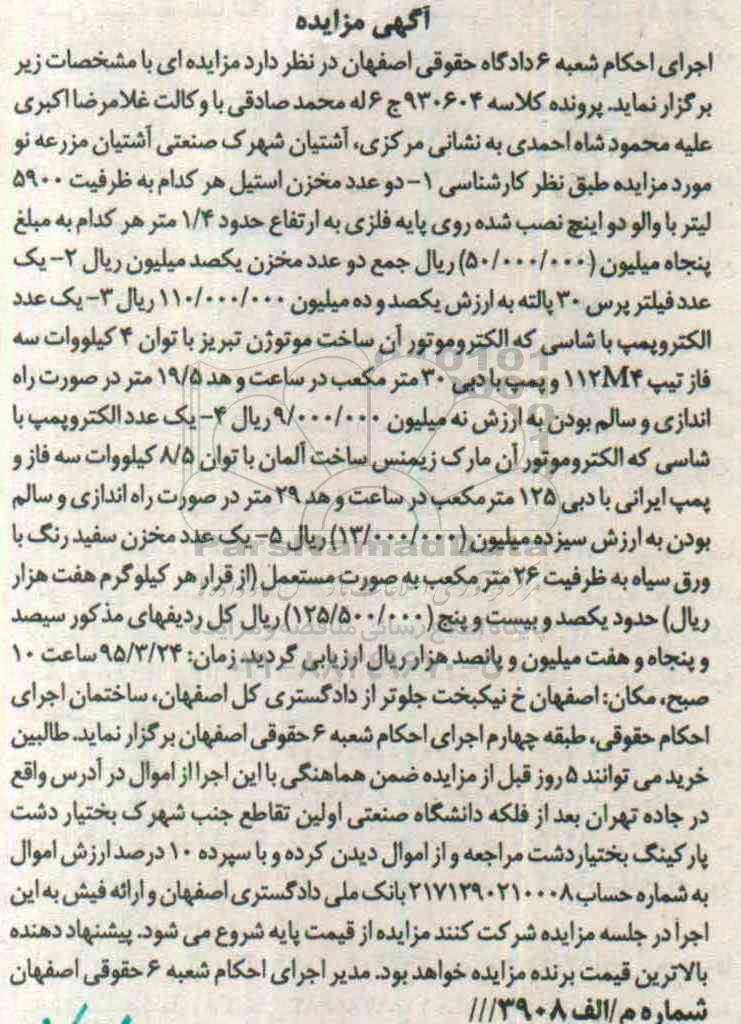 آگهی مزایده
اجرای احکام شعبه ۶ دادگاه حقوقی اصفهان در نظر دارد مزایده ای با مشخصات زیر
برگزار نماید. پرونده کلاسه ۹۳۰۶۰۴ج ۶ له محمد صادقی با وکالت غلامرضا اکبری
علیه محمود شاه احمدی به نشانی مرکزی، آشتیان شهرک صنعتی آشتیان مزرعه نو
مورد مزایده طبق نظر کارشناسی ۱- دو عدد مخزن استیل هر کدام به ظرفیت ۵۹۰۰
لیتر با والو دو اینچ نصب شده روی پایه فلزی به ارتفاع حدود ۱/۴ متر هر کدام به مبلغ
پنجاه میلیون (۵۰/۰۰۰/۰۰۰) ریال جمع دو عدد مخزن یکصد میلیون ریال ۲- یک
عدد فیلتر پرس ۳۰ پالته به ارزش یکصد و ده میلیون ۱۱۰/۰۰۰/۰۰۰ ریال ۳- یک عدد
الکتروپمپ با شاسی که الکتروموتور آن ساخت موتوژن تبریز با توان ۴ کیلووات سه
فاز تیپ ۱۱۲M۴ و پمپ با دبی ۳۰ متر مکعب در ساعت و هد ۱۹/۵ متر در صورت راه
اندازی و سالم بودن به ارزش نه میلیون ۹/۰۰۰/۰۰۰ ریال ۴- یک عدد الکتروپمپ با
شاسی که الکتروموتور آن مارک زیمنس ساخت آلمان با توان ۸/۵ کیلووات سه فاز و
پمپ ایرانی با دبی ۱۲۵ مترمکعب در ساعت و هد ۲۹ متر در صورت راه اندازی و سالم
بودن به ارزش سیزده میلیون (۱۳/۰۰۰/۰۰۰) ریال ۵- یک عدد مخزن سفید رنگ با
ورق سیاه به ظرفیت ۲۶ متر مکعب به صورت مستعمل (از قرار هر کیلوگرم هفت هزار
ریال) حدود یکصد و بیست و پنج (۱۲۵/۵۰۰/۰۰۰) ریال کل ردیفهای مذکور سیصد
و پنجاه و هفت میلیون و پانصد هزار ریال ارزیابی گردید. زمان: ۹۵/۳/۲۴ ساعت ۱۰
صبح، مکان: اصفهان خ نیکبخت جلوتر از دادگستری کل اصفهان، ساختمان اجرای
احکام حقوقی، طبقه چهارم اجرای احکام شعبه ۶ حقوقی اصفهان برگزار نماید. طالبین
خرید می توانند ۵ روز قبل از مزایده ضمن هماهنگی با این اجرا از اموال در آدرس واقع
در جاده تهران بعد از فلکه دانشگاه صنعتی اولین تقاطع جنب شهرک بختیار دشت
پارکینگ بختیاردشت مراجعه و از اموال دیدن کرده و با سپرده ۱۰ درصد ارزش اموال
به شماره حساب ۲۱۷۱۲۹۰۲۱۰۰۰۸ بانک ملی دادگستری اصفهان و ارائه فیش به این
اجرا در جلسه مزایده شرکت کنند مزایده از قیمت پایه شروع می شود. پیشنهاد دهنده
بالاترین قیمت برنده مزایده خواهد بود. مدیر اجرای احکام شعبه ۶ حقوقی اصفهان
شماره م/الف ۳۹۰۸///
ParsNamadData